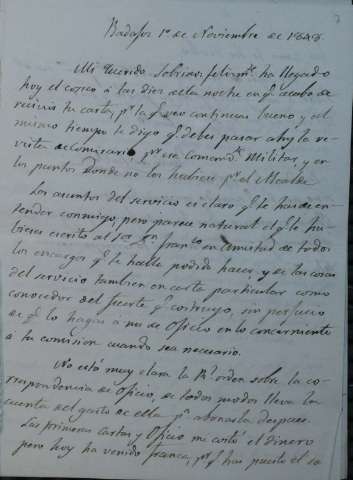 Badajoz 1º de Noviembre de 1848
Mi querido Sobrino: felizmte ha llegado
hoy el correo a las diez de la noche en q.e acabo de
recivir tu carta, pr la q.e veo continuas bueno y al
mismo tiempo te digo q.e debes pasar ahy la re-
vista de Comisario pr ese Coman.te Militar, y en
los puntos donde no los hubiere pr el Alcalde
Los asuntos del servicio es claro q.e te has de en-
tender conmigo, pero parece natural el q.e hu-
bieses escrito al en amistad de todos
los encargos q.e te halla podido hacer, y de las cosas
del servicio tambien en carta particular como
conocedor del fuerte q.e construyo, sin perjuicio
de q.e lo hagas a mi de Oficio en lo concerniente
a tu comision cuando sea necesario.
No está muy clara la Rl orden sobre la co-
rrespondencia de oficio, de todos modos lleva la
cuenta del gasto de ella pa abonarla despues.
Las primeras cartas y Oficio me costó el dinero
pero hoy ha venido franca, pr q.e has puesto el se